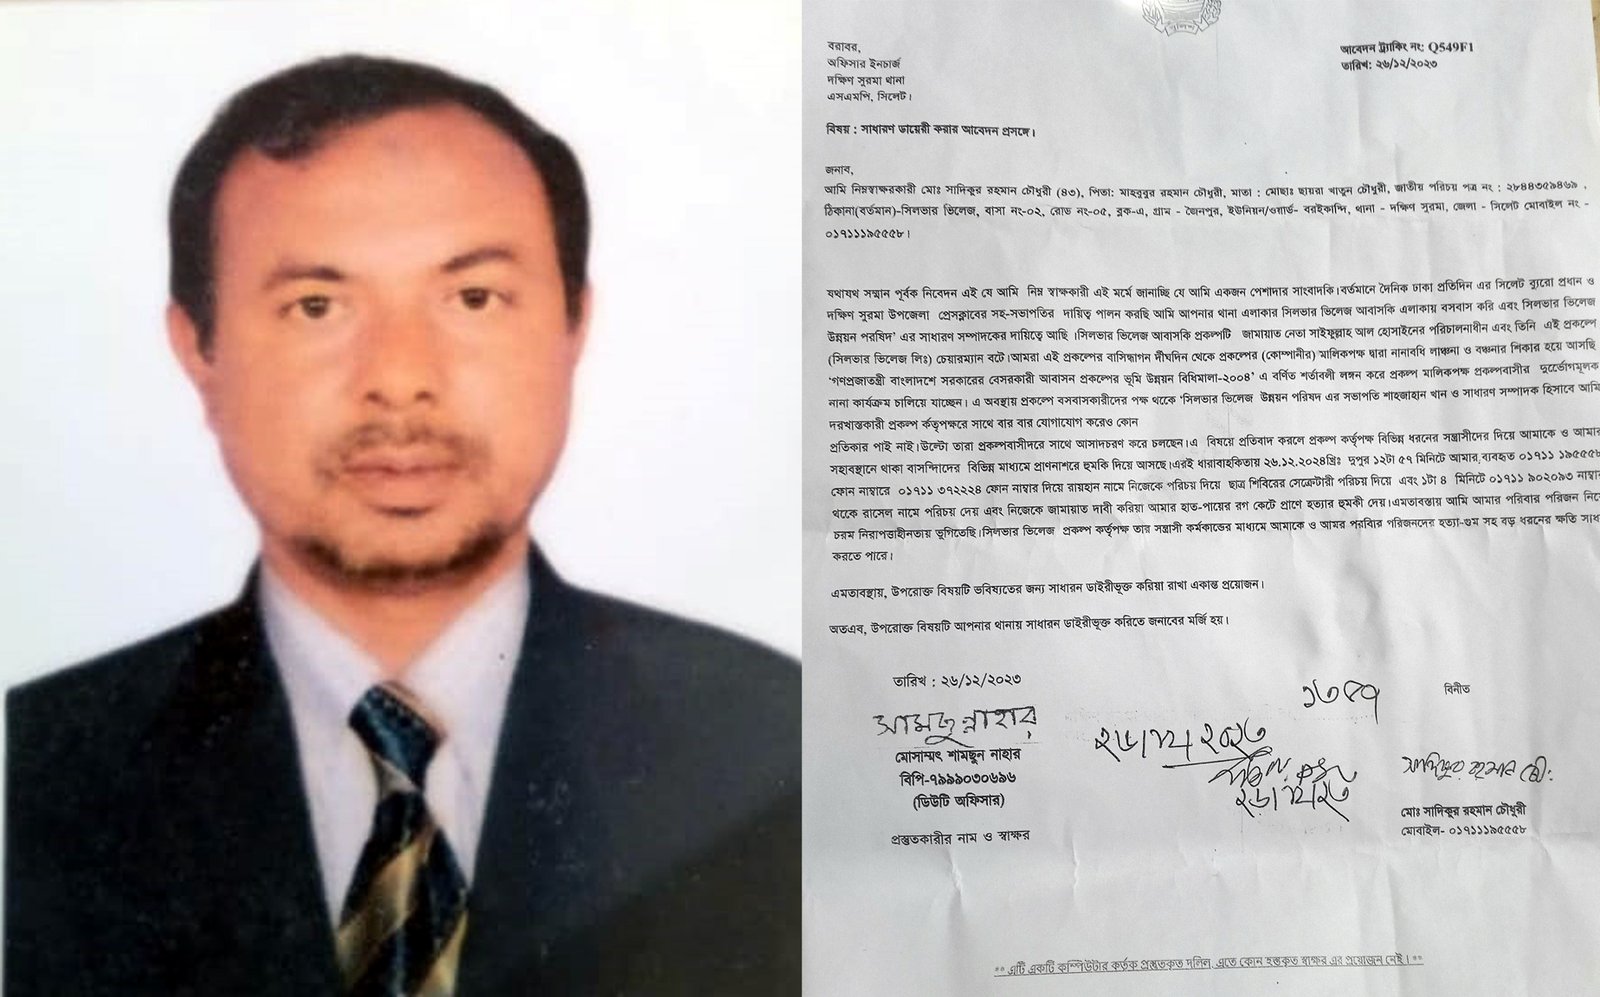 পুলিশ
বরাবর,
অফিসার ইনচার্জ
দক্ষিণ সুরমা থানা
এসএমপি, সিলেট।
আবেদন ট্র্যাকিং নং: Q549F1
তারিখ: ২৬/১২/২০২৩
বিষয় : সাধারণ ডায়েরী করার আবেদন প্রসঙ্গে।
জনাব,
আমি নিম্নস্বাক্ষরকারী মোঃ সাদিকুর রহমান চৌধুরী (৪৩), পিতা: মাহবুবুর রহমান চৌধুরী, মাতা : মোছাঃ ছায়রা খাতুন চৌধুরী, জাতীয় পরিচয় পত্র নং : ২৮৪৪৩৫৯৪৬৯ ,
ঠিকানা(বর্তমান)-সিলভার ভিলেজ, বাসা নং-০২, রোড নং-০৫, ব্লক-এ, গ্রাম - জৈনপুর, ইউনিয়ন/ওয়ার্ড- বরইকান্দি, থানা - দক্ষিণ সুরমা, জেলা - সিলেট মোবাইল নং -
০১৭১১১৯৫৫৫৮।
যথাযথ সম্মান পূর্বক নিবেদন এই যে আমি নিম্ন স্বাক্ষকারী এই মর্মে জানাচ্ছি যে আমি একজন পেশাদার সাংবাদকি।বর্তমানে দৈনিক ঢাকা প্রতিদিন এর সিলেট ব্যুরো প্রধান ও
দক্ষিণ সুরমা উপজেলা প্রেসক্লাবের সহ-সভাপতির দায়িত্ব পালন করছি আমি আপনার থানা এলাকার সিলভার ভিলেজ আবাসকি এলাকায় বসবাস করি এবং সিলভার ভিলেজ
উন্নয়ন পরষিদ' এর সাধারণ সম্পাদকের দায়িত্বে আছি ।সিলভার ভিলেজ আবাসকি প্রকল্পটি জামায়াত নেতা সাইফুল্লাহ আল হোসাইনের পরিচালনাধীন এবং তিনি এই প্রকল্পে
(সিলভার ভিলেজ লিঃ) চেয়ারম্যান বটে।আমরা এই প্রকল্পের বাসিদ্ধাগন দীঘদিন থেকে প্রকল্পের (কোম্পানীর) মালিকপক্ষ দ্বারা নানাবধি লাঞ্চনা ও বঞ্চনার শিকার হয়ে আসছি
'গণপ্রজাতন্ত্রী বাংলাদশে সরকারের বেসরকারী আবাসন প্রকল্পের ভূমি উন্নয়ন বিধিমালা-২০০৪' এ বর্ণিত শর্তাবলী লঙ্গন করে প্রকল্প মালিকপক্ষ প্রকল্পবাসীর দুর্ভোগমূলক
নানা কার্যক্রম চালিয়ে যাচ্ছেন। এ অবস্থায় প্রকল্পে বসবাসকারীদের পক্ষ থকেে 'সিলভার ভিলেজ উন্নয়ন পরিষদ এর সভাপতি শাহজাহান খান ও সাধারণ সম্পাদক হিসাবে আমি
দরখাস্তকারী প্রকল্প র্কতৃপক্ষরে সাথে বার বার যোগাযোগ করেও কোন
প্রতিকার পাই নাই।উল্টো তারা প্রকল্পবাসীদরে সাথে আসাদচরণ করে চলছেন।এ বিষয়ে প্রতিবাদ করলে প্রকল্প কর্তৃপক্ষ বিভিন্ন ধরনের সন্ত্রাসীদের দিয়ে আমাকে ও আমার
সহাবস্থানে থাকা বাসন্দিাদের বিভিন্ন মাধ্যমে প্রাণনাশরে হুমকি দিয়ে আসছে।এরই ধারাবাহকিতায় ২৬.১২.২০২৪খ্রিঃ দুপুর ১২টা ৫৭ মিনিটে আমার,ব্যবহৃত ০১৭১১ ১৯৫৫৫৮
ফোন নাম্বারে ০১৭১১ ৩৭২২২৪ ফোন নাম্বার দিয়ে রায়হান নামে নিজেকে পরিচয় দিয়ে ছাত্র শিবিরের সেক্রেটারী পরিচয় দিয়ে এবং ১টা ৪ মিনিটে ০১৭১১ ৯০২০৯৩ নাম্বার
থকেে রাসেল নামে পরিচয় দেয় এবং নিজেকে জামায়াত দাবী করিয়া আমার হাত-পায়ের রগ কেটে প্রাণে হত্যার হুমকী দেয়।এমতাবস্তায় আমি আমার পরিবার পরিজন নিয়ে
চরম নিরাপত্তাহীনতায় ভূগিতেছি।সিলভার ভিলেজ প্রকল্প কর্তৃপক্ষ তার সন্ত্রাসী কর্মকান্ডের মাধ্যমে আমাকে ও আমর পরবিার পরিজনদের হত্যা-গুম সহ বড় ধরনের ক্ষতি সাধ
করতে পারে।
এমতাবস্থায়, উপরোক্ত বিষয়টি ভবিষ্যতের জন্য সাধারন ডাইরীভূক্ত করিয়া রাখা একান্ত প্রয়োজন।
অতএব, উপরোক্ত বিষয়টি আপনার থানায় সাধারন ডাইরীভূক্ত করিতে জনাবের মর্জি হয়।
তারিখ : ২৬/১২/২০২৩
সামছুন্নাহার
মোসাম্মৎ শামছুন নাহার
বিপি-৭৯৯৯০৩০৬৯৬
(ডিউটি অফিসার)
প্রস্তুতকারীর নাম ও স্বাক্ষর
১৩৫৭
২৬/১২/২০২৩
২৬/১২/২৩
বিনীত
সাদিকুর রহমান চৌ:
মোঃ সাদিকুর রহমান চৌধুরী
মোবাইল- ০১৭১১১৯৫৫৫৮
** এটি একটি কম্পিউটার কর্তৃক প্রস্তুতকৃত দলিল, এতে কোন হস্তকৃত স্বাক্ষর এর প্রয়োজন নেই। **